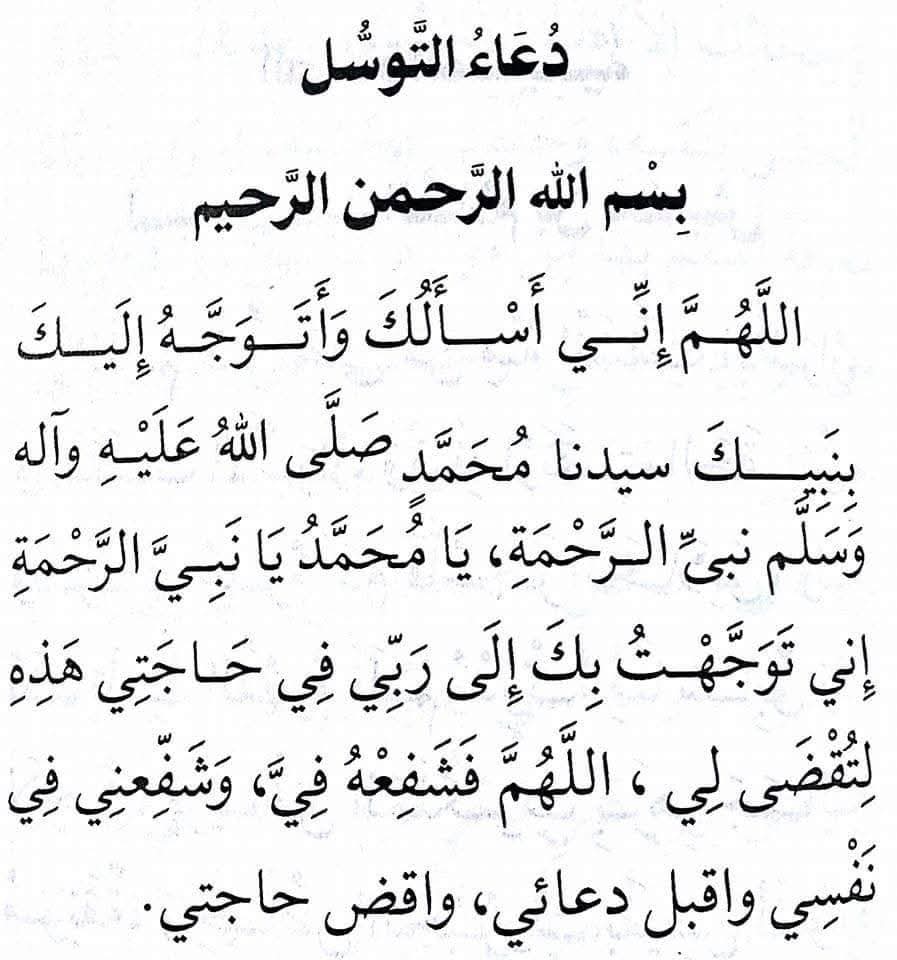 دُعَاءُ التَّوسُّل
بِسْم الله الرَّحمن الرَّحيم
اللَّهُمَّ إِنِّي أَسْأَلُكَ وَأَتَوَجَّهُ إِلَيكَ
بِنَبِيِكَ سيدنا مُحَمَّدٍ صَلَّى اللهُ عَلَيْهِ وآله
وَسَلَّم نبىِّ الرَّحْمَةِ، يَا مُحَمَّدُ يَا نَبِيَّ الرَّحْمَةِ
إِني تَوَجَّهْتُ بِكَ إِلَى رَبِّي فِي حَاجَتِي هَذِهِ
لِتُقْضَى لِي ، اللَّهُمَّ فَشَفِعْهُ فِيَّ، وَشَفِّعنِي فِي
نَفْسِي واقبل دعائي، واقض حاجتي.